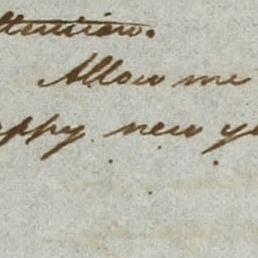 attention.
Allow me
appy new ye